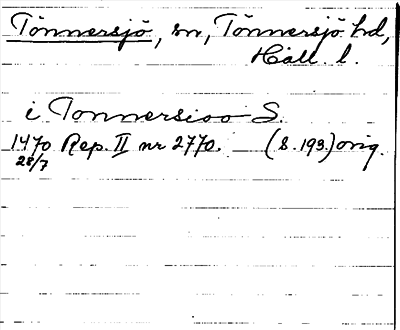 Tönnersjö, sn, Tönnersjö hd,
Hall. l.
i Tonnersioo S.
1470 Rep. II nr 2770. (S. 193.) orig.
28/7